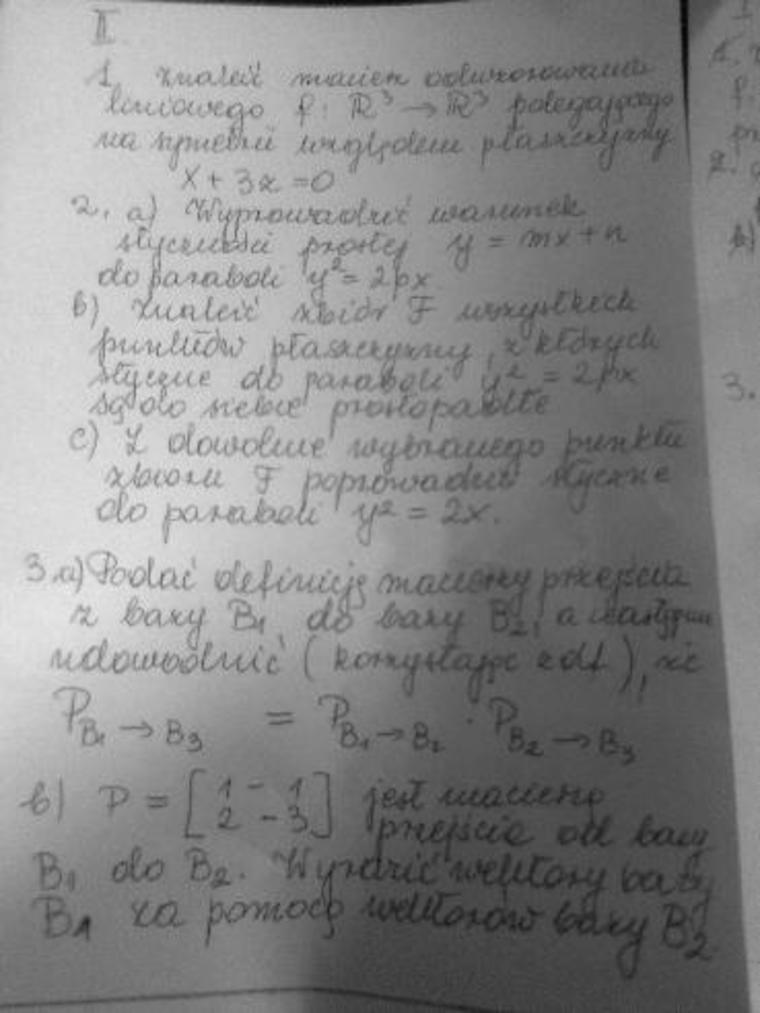 II
1. Znaleźć macierz odwzorowania
liniowego f: ℝ³ → ℝ³ polegającego
na symetrii względem płaszczyzny
x + 3z = 0
2. a) Wyprowadzić warunek
styczności prostej y = mx + n
do paraboli y² = 2px
b) Znaleźć zbiór F wszystkich
punktów płaszczyzny, z których
styczne do paraboli y² = 2px
są do siebie prostopadłe
c) Z dowolnie wybranego punktu
zbioru F poprowadzić styczne
do paraboli y² = 2x.
3. a) Podać definicję macierzy przejścia
z bazy B₁ do bazy B₂, a następnie
udowodnić (korzystając z df), że
P B₁ → B₃ = P B₁ → B₂ · P B₂ → B₃
b) P = [1 - 1
2 - 3] jest macierzą
przejścia od bazy
B₁ do B₂. Wyrazić wektory bazy
B₁ za pomocą wektorów bazy B₂
1.
f:
2.
b)
3.